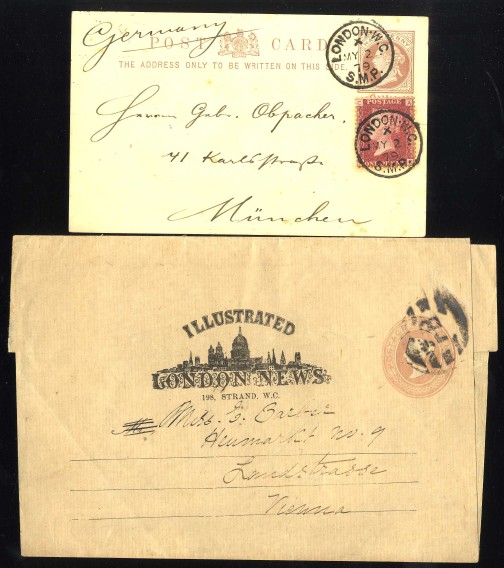 Germany
POST CARD
THE ADDRESS ONLY TO BE WRITTEN ON THIS SIDE.
LONDON·W.C.
X
MY 2
79
S.M.P.
POSTAGE
LONDON·W.C.
X
MY 2
79
S.M.P.
Herren Gebr. Obpacher.
41 Karlstraße
München
ILLUSTRATED
LONDON NEWS.
198, STRAND, W.C.
Heumarkt No. 9
Landstrasse
Vienna